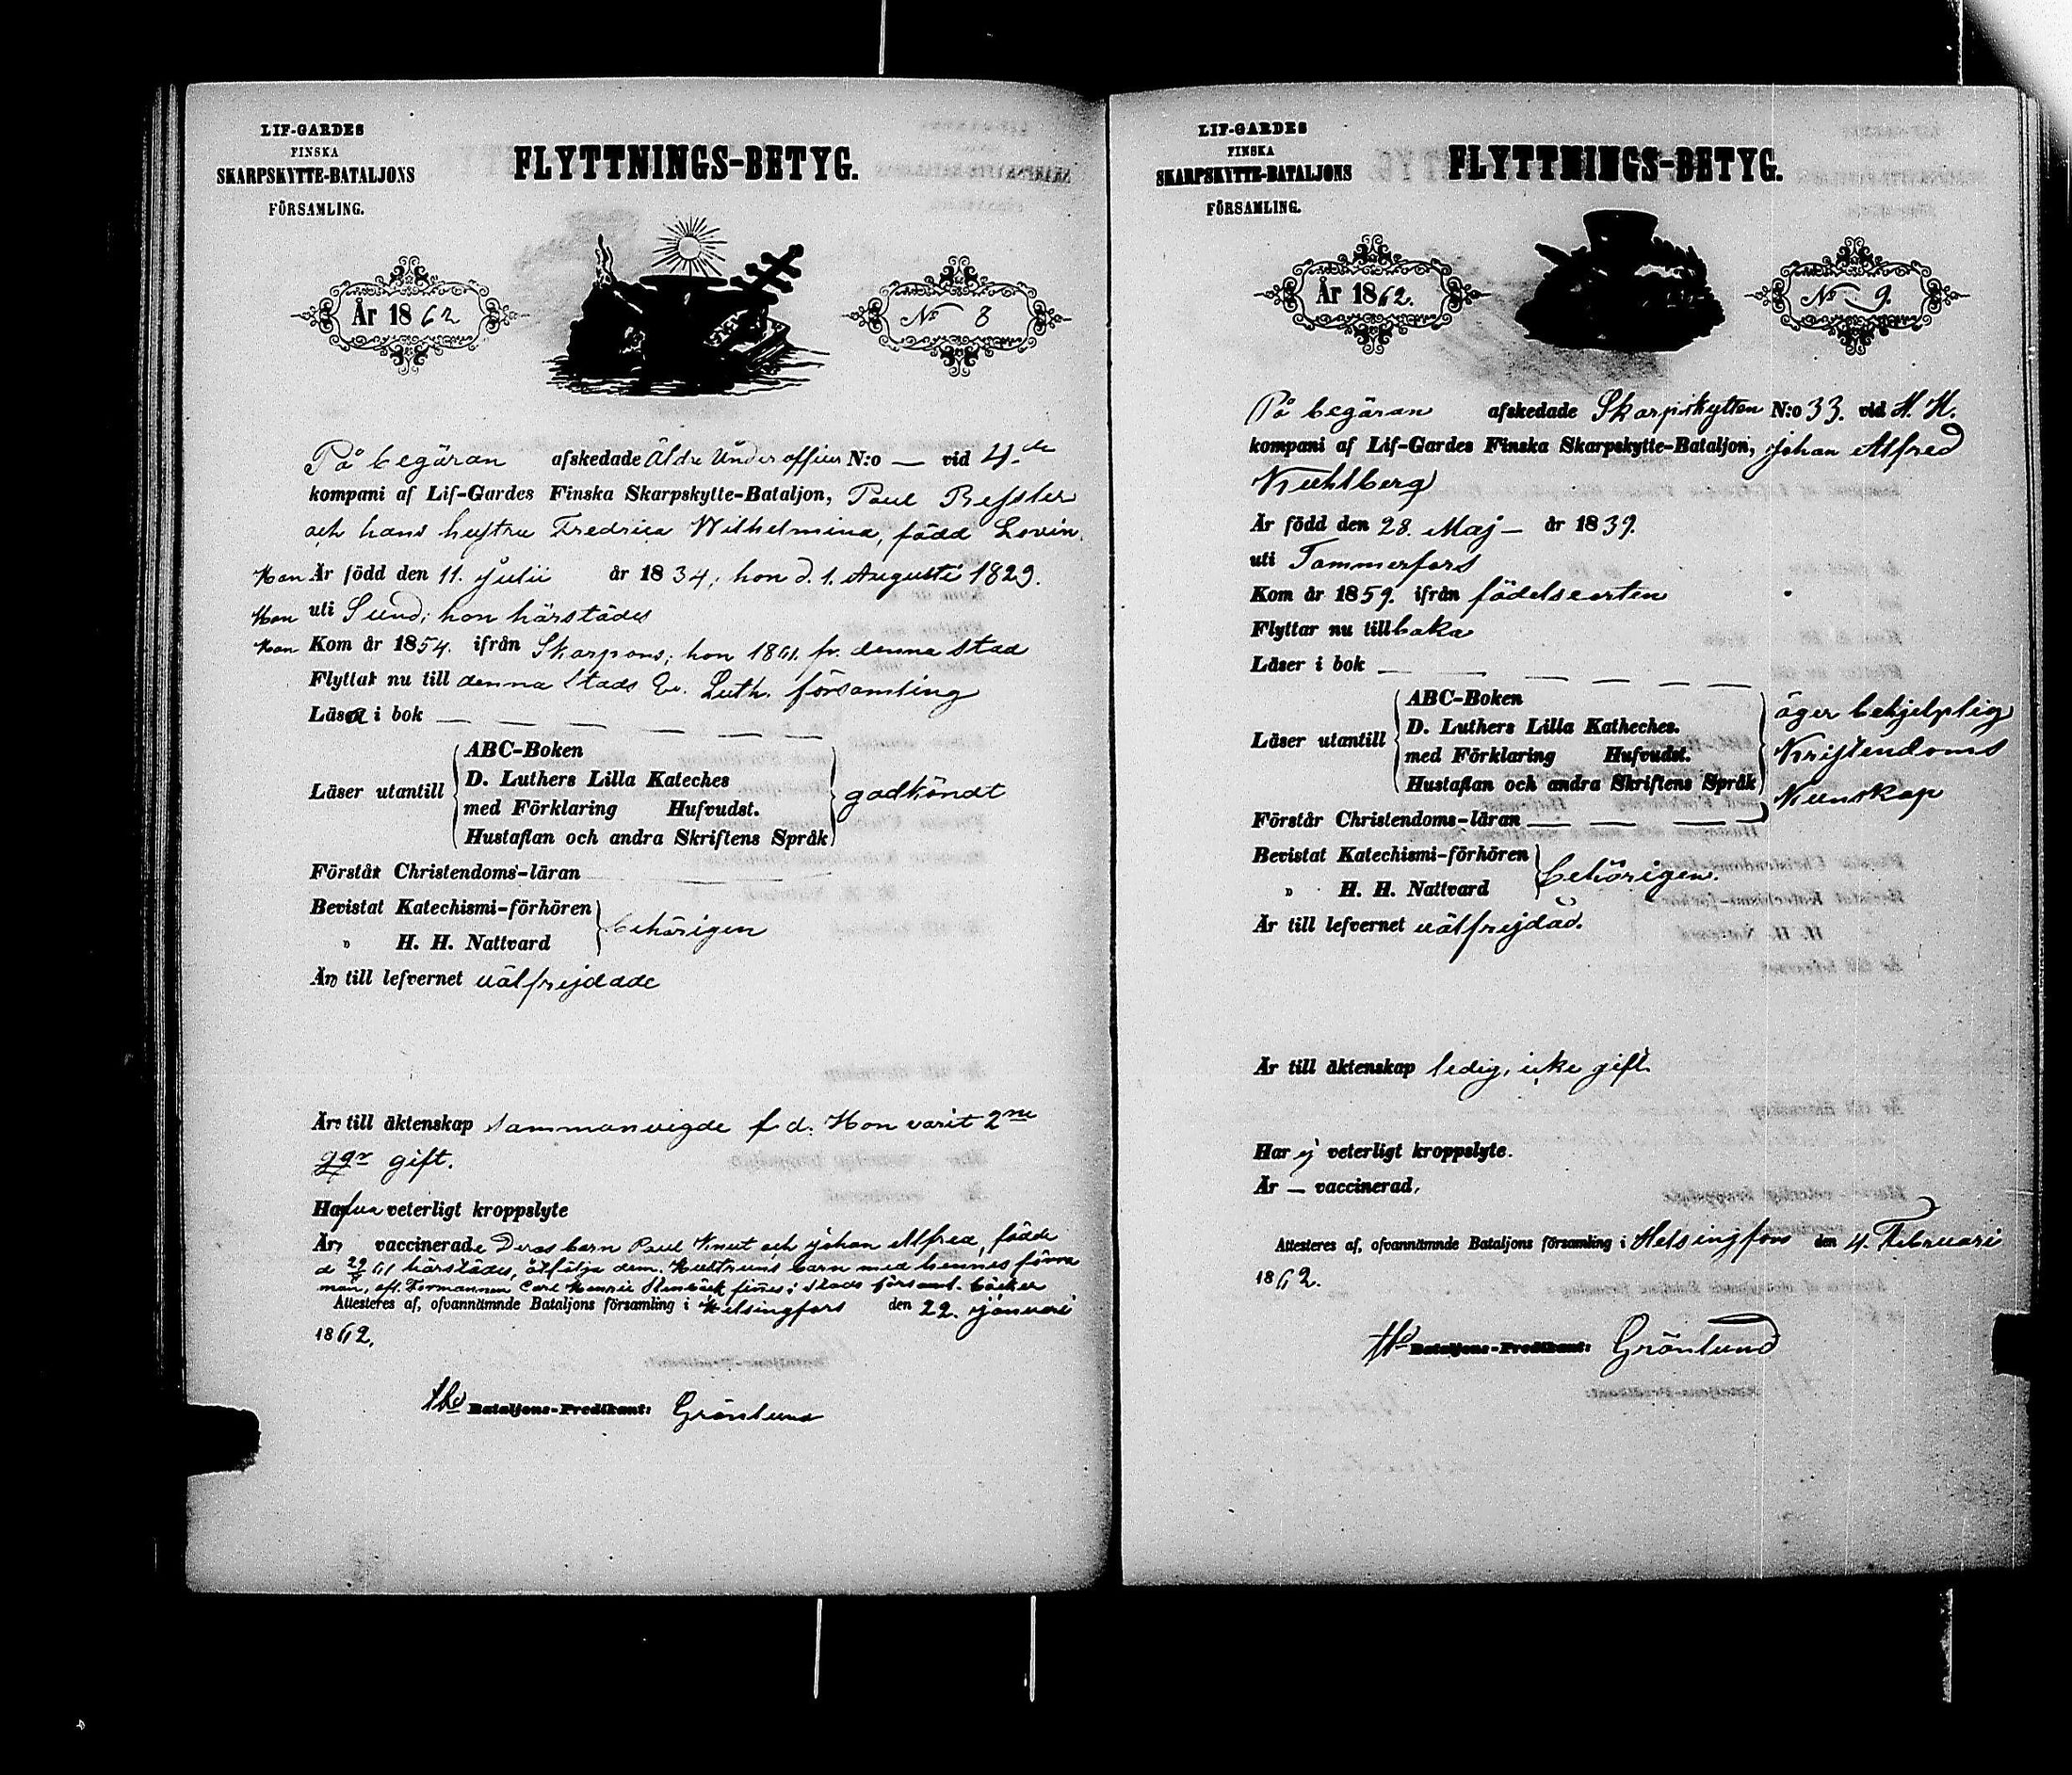 LIF-GARDES
FINSKA
SKARPSKYTTE-BATALJONS
FÖRSAMLING.
FLYTTNINGS-BETYG.
År 1862
No 8
På begäran afskedade Äldre Underofficer N:o — vid 4.de
kompani af Lif-Gardes Finska Skarpskytte-Bataljon, Paul Ressler
och hans hustru Fredrica Wilhelmina, född Lovin.
Han Är född den 11. Julii år 1834, hon d. 1. Augusti 1829.
Han uti Sund; hon härstädes
Han Kom år 1854. ifrån Skarpans; hon 1861. fr. denna stad
Flytta nu till denna Stads Ev. Luth. församling
Läsa i bok — — — — —
Läser utantill
ABC-Boken
D. Luthers Lilla Kateches
med Förklaring Hufvudst.
Hustaflan och andra Skriftens Språk
godkändt
Förstår Christendoms-läran
Bevistat Katechismi-förhören
" H. H. Nattvard
behörigen
Äro till lefvernet välfrejdade
Äro till äktenskap sammanvigde f. d. Hon varit 2ne
ggr gift.
Hafva veterligt kroppslyte
Äro vaccinerade Deras barn Paul Knut och Johan Alfred, födde
d. 29/ 61 härstädes, åtfölja dem. Hustruns barn med hennes förra
man, afl. Formannen Carl Henric Stenbäck finnes i Stads församl. böcker
Attesteres af, ofvannämnde Bataljons församling i Helsingfors den 22. Januari
1862.
Bataljons-Predikant: Grönlund
LIF-GARDES
FINSKA
SKARPSKYTTE-BATALJONS
FÖRSAMLING.
FLYTTNINGS-BETYG.
År 1862.
No 9.
På begäran afskedade Skarpskytten N:o 33. vid H. K.
kompani af Lif-Gardes Finska Skarpskytte-Bataljon, Johan Alfred
Kuhlberg
Är född den 28. Maj — år 1839.
uti Tammerfors
Kom år 1859. ifrån födelseorten
Flyttar nu tillbaka
Läser i bok — — — — — —
Läser utantill
ABC-Boken
D. Luthers Lilla Katheches.
med Förklaring Hufvudst.
Hustaflan och andra Skriftens Språk
äger behjelplig
Kristendoms
Kunskap
Förstår Christendoms-läran — — — —
Bevistat Katechismi-förhören
" H. H. Nattvard
behörigen.
Är till lefvernet välfrejdad.
Är till äktenskap ledig, icke gift.
Har ej veterligt kroppslyte.
Är — vaccinerad,
Attesteres af, ofvannämnde Bataljons församling i Helsingfors den 4. Februari
1862.
Bataljons-Predikant: Grönlund